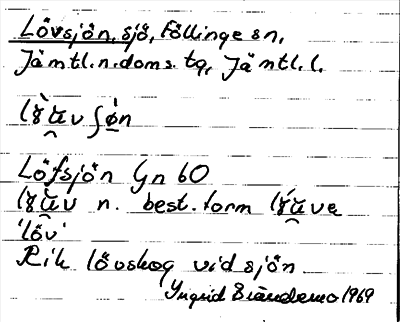 Lövsjön, sjö, Föllinge sn,
Jämtl.n.doms. tg, Jämtl.l.
Löfsjön Gn 60
n. best. form
'löv'
Rik lövskog vid sjön
Yngrid 1969